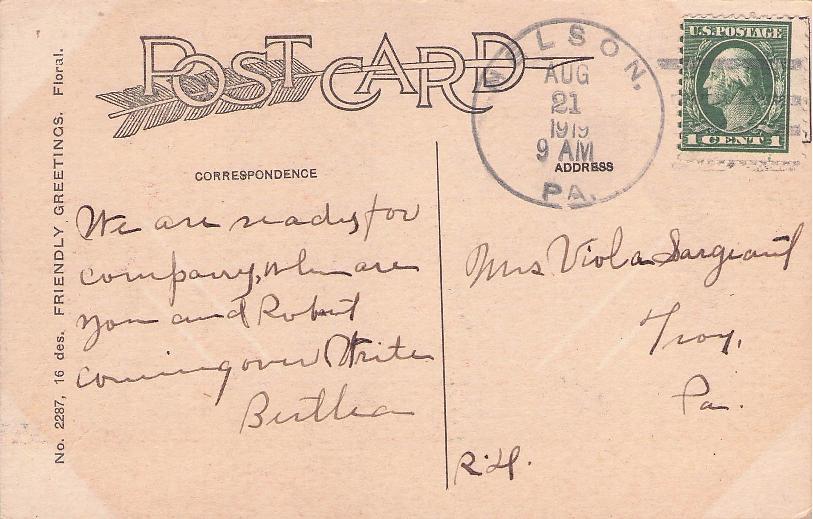 POST CARD
U.S. POSTAGE
1 CENT 1
AUG
21
1919
9 AM
PA.
CORRESPONDENCE
ADDRESS
We are ready for
company, when are
you and Robert
coming over Write
Bertha
Mrs Viola Sargeant
Troy,
Pa.
No. 2287, 16 des. FRIENDLY GREETINGS. Floral.